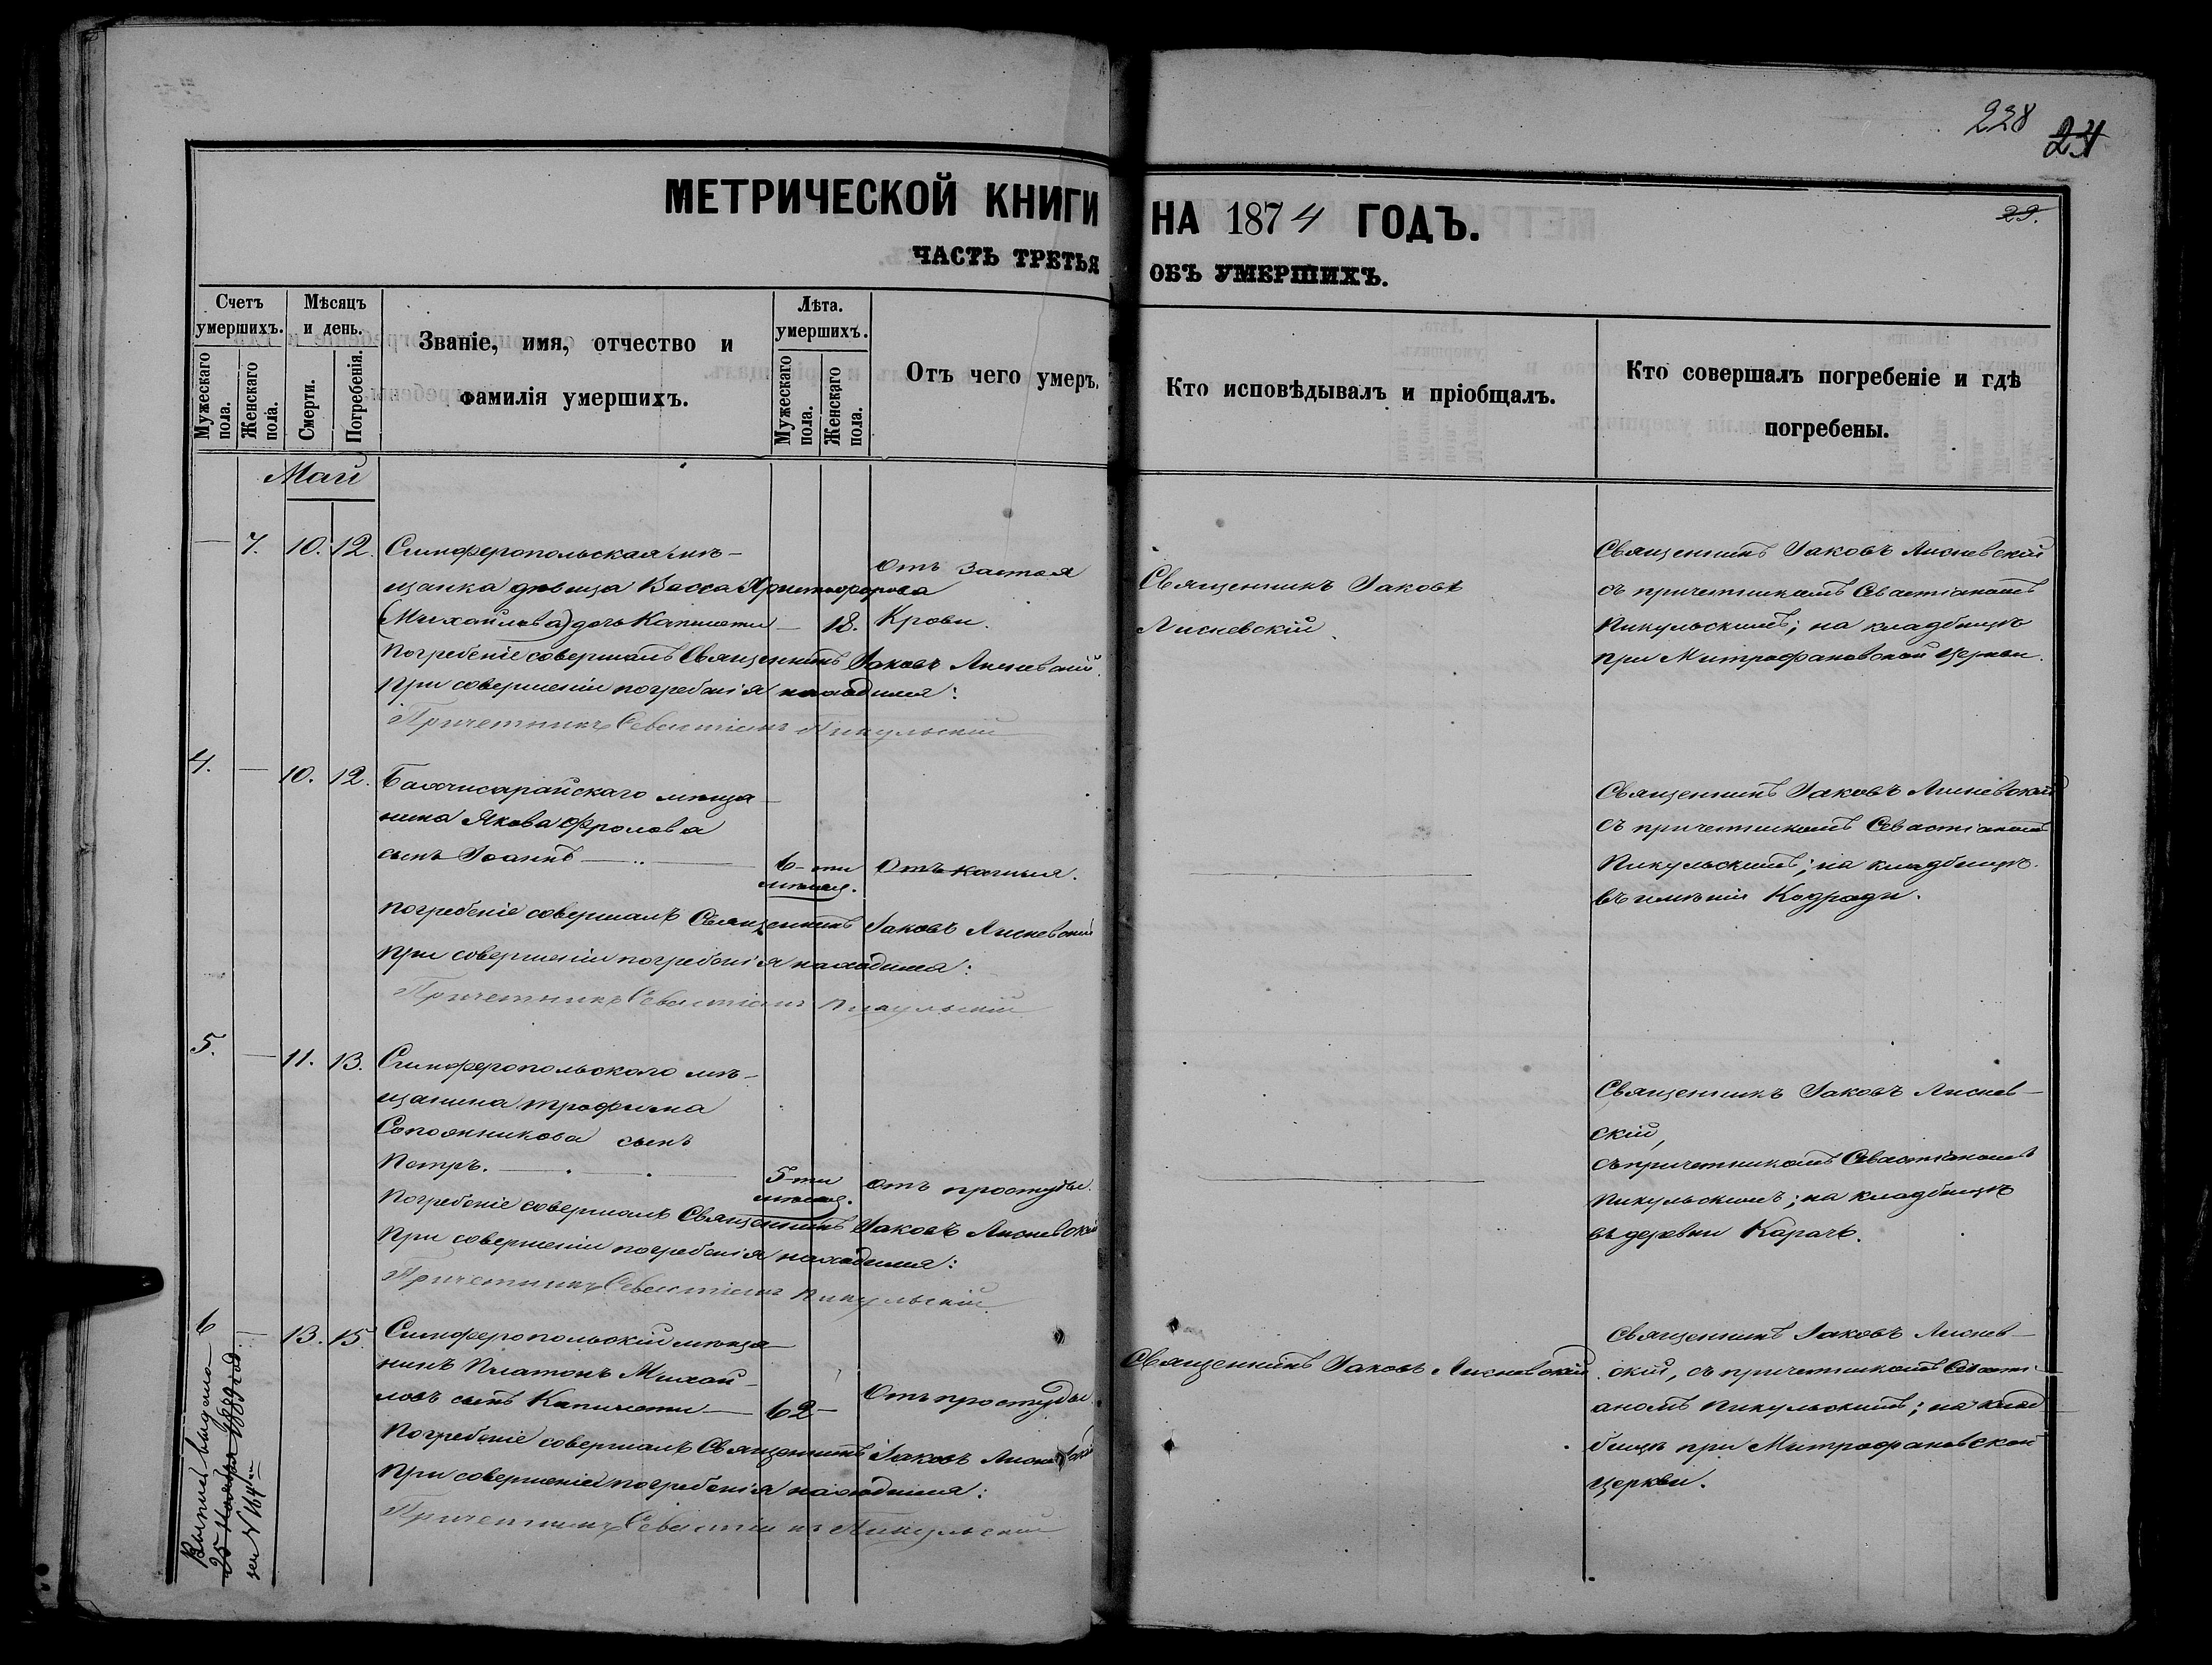 228
24
29.
МЕТРИЧЕСКОЙ КНИГИ НА 1874 ГОДЪ.
ЧАСТЬ ТРЕТЬЯ ОБЪ УМЕРШИХЪ.
Счетъ умершихъ.
Мужескаго пола.
Женскаго пола.
Мѣсяцъ и день.
Смерти.
Погребенія.
Званіе, имя, отчество и
фамилія умершихъ.
Лѣта умершихъ.
Мужескаго пола.
Женскаго пола.
Отъ чего умеръ.
Кто исповѣдывалъ и пріобщалъ.
Кто совершалъ погребеніе и гдѣ
погребены.
Май
— 7. 10. 12. Симферопольская мѣ-
щанка дѣвица Васса Христофорова
(Михайлова) дочь Капилети — 18.
Отъ застоя
Крови.
Погребеніе совершалъ Священникъ Іаковъ Лисневскій.
При совершеніи погребенія находился:
Причетникъ Севастіанъ Пикульскій
Священникъ Іаковъ
Лисневскій.
Священникъ Іаковъ Лисневскій
съ причетникомъ Севастіаномъ
Пикульскимъ; на кладбищѣ
при Митрофановской церкви.
4. — 10. 12. Бахчисарайскаго мѣща-
нина Якова Фролова
сынъ Іоаннъ —
6-ти
мѣсяц.
Отъ кашля.
Погребеніе совершалъ Священникъ Іаковъ Лисневскій
При совершеніи погребенія находился:
Причетникъ Севастіанъ Пикульскій
Священникъ Іаковъ Лисневскій
съ причетникомъ Севастіаномъ
Пикульскимъ; на кладбищѣ
въ имѣніи
5. — 11. 13. Симферопольскаго мѣ-
щанина Трофима
Сапожникова сынъ
Петръ. —
5-ти
мѣсяц.
Отъ простуды.
Погребеніе совершалъ Священникъ Іаковъ Лисневскій
При совершеніи погребенія находился:
Причетникъ Севастіанъ Пикульскій
Священникъ Іаковъ Лиснев-
скій,
съ причетникомъ Севастіаномъ
Пикульскимъ; на кладбищѣ
въ деревни Карачъ.
6 — 13. 15. Симферопольскій мѣща-
нинъ Платонъ Михай-
ловъ сынъ Капилети — 62 —
Отъ простуды.
Погребеніе совершалъ Священникъ Іаковъ Лисневскій
При совершеніи погребенія находился:
Причетникъ Севастіанъ Пикульскій
Священникъ Іаковъ Лисневскій.
Священникъ Іаковъ Лиснев-
скій, съ причетникомъ Севасті-
аномъ Пикульскимъ; на клад-
бищѣ при Митрофановской
церкви.
Выпись выдана
25 Ноября 1889 год
за №